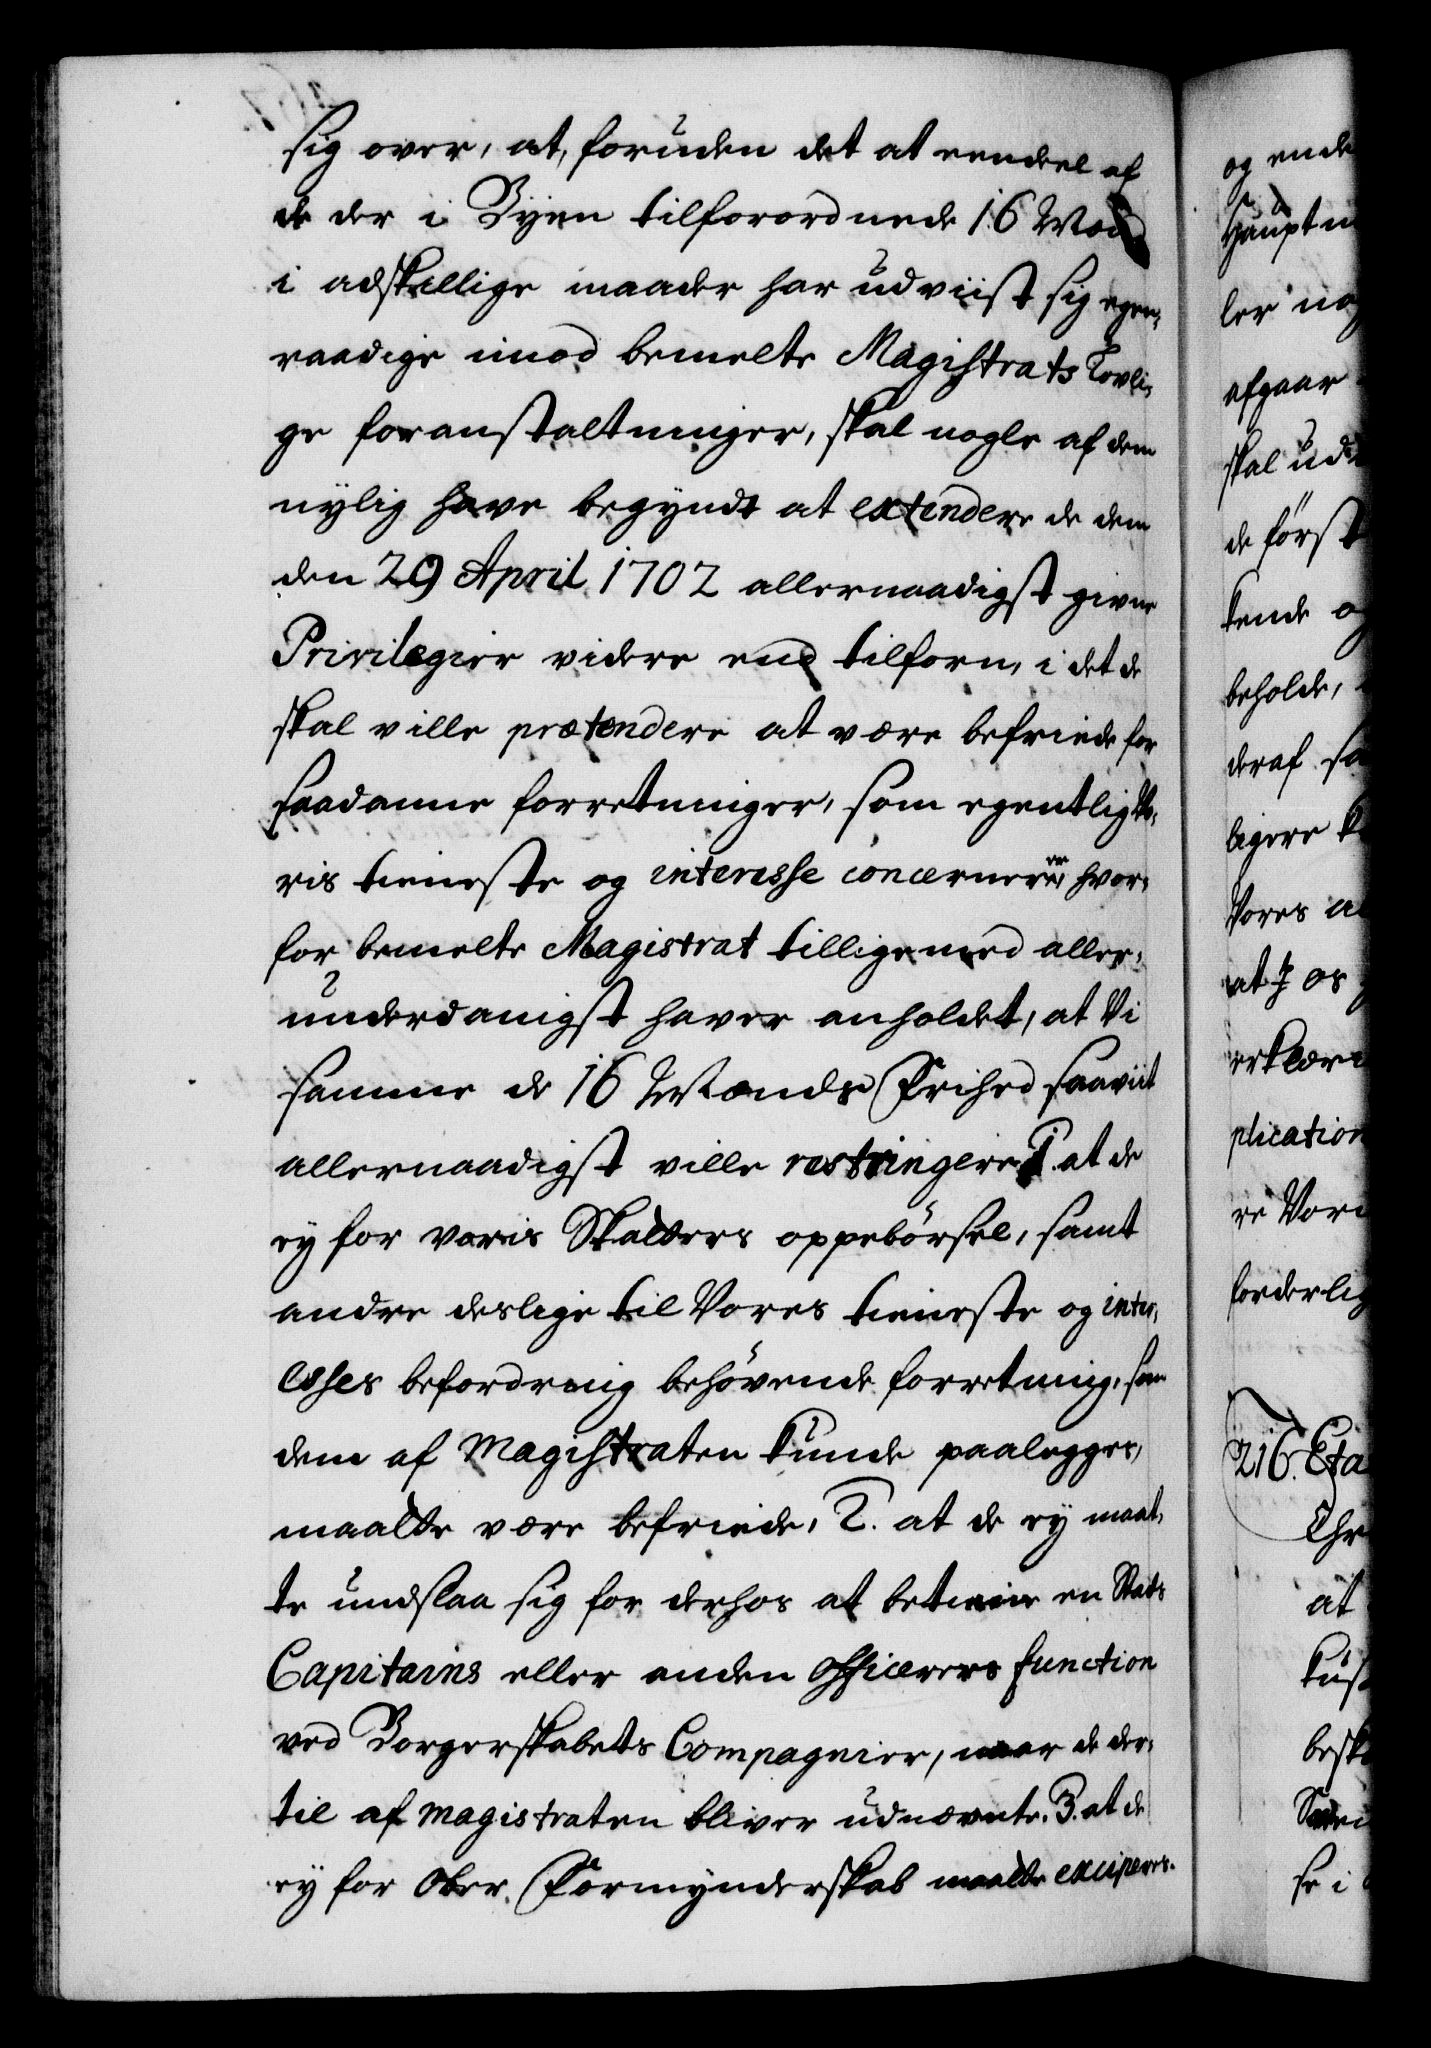 sig over, at, foruden det at eendeel af
de der i Byen tilforordnede 16 Mænd
i adskillige maader har udviist sig egen,
raadige imod bemelte Magistrats Lovli,
ge foranstaltninger, skal nogle af dem
nylig have begyndt at extendere de dem
den 29 April 1702 allernaadigst givne
Privilegier videre end tilforn, i det de
skal ville prætendere at være befriede for
saadanne forretninger, som egentlig Vo,
ris tieneste og interesse concernerer, hvor,
for bemelte Magistrat tilligemed aller,
underdanigst haver anholdet, at Vi
samme de 16 Mænds Frihed saaviit
allernaadigst ville restringere 1. at de
ey for voris Skatters oppebörsel, samt
andre deslige til Vores tieneste og inter,
esses befordring behövende forretning, som
dem af Magistraten kunde paalegges,
maatte være befriede, 2. at de ey maat,
te undslaa sig for derhos at betiene en Stats
Capitains eller anden Officerers function
ved Borgerskabets Compagnier, naar de der,
til af magistraten bliver udnævnte. 3. at de
ey for Ober Formynderskab maatte exciperes.
og ende
Hauptm
ler nog
afgaar
skal ud
de först
kende og
beholde,
deraf sa
ligere k
Vores al
at I os
erklæri
plication
re Vori
forderlig
216. Eta
Chr
at
kus
besk
se i